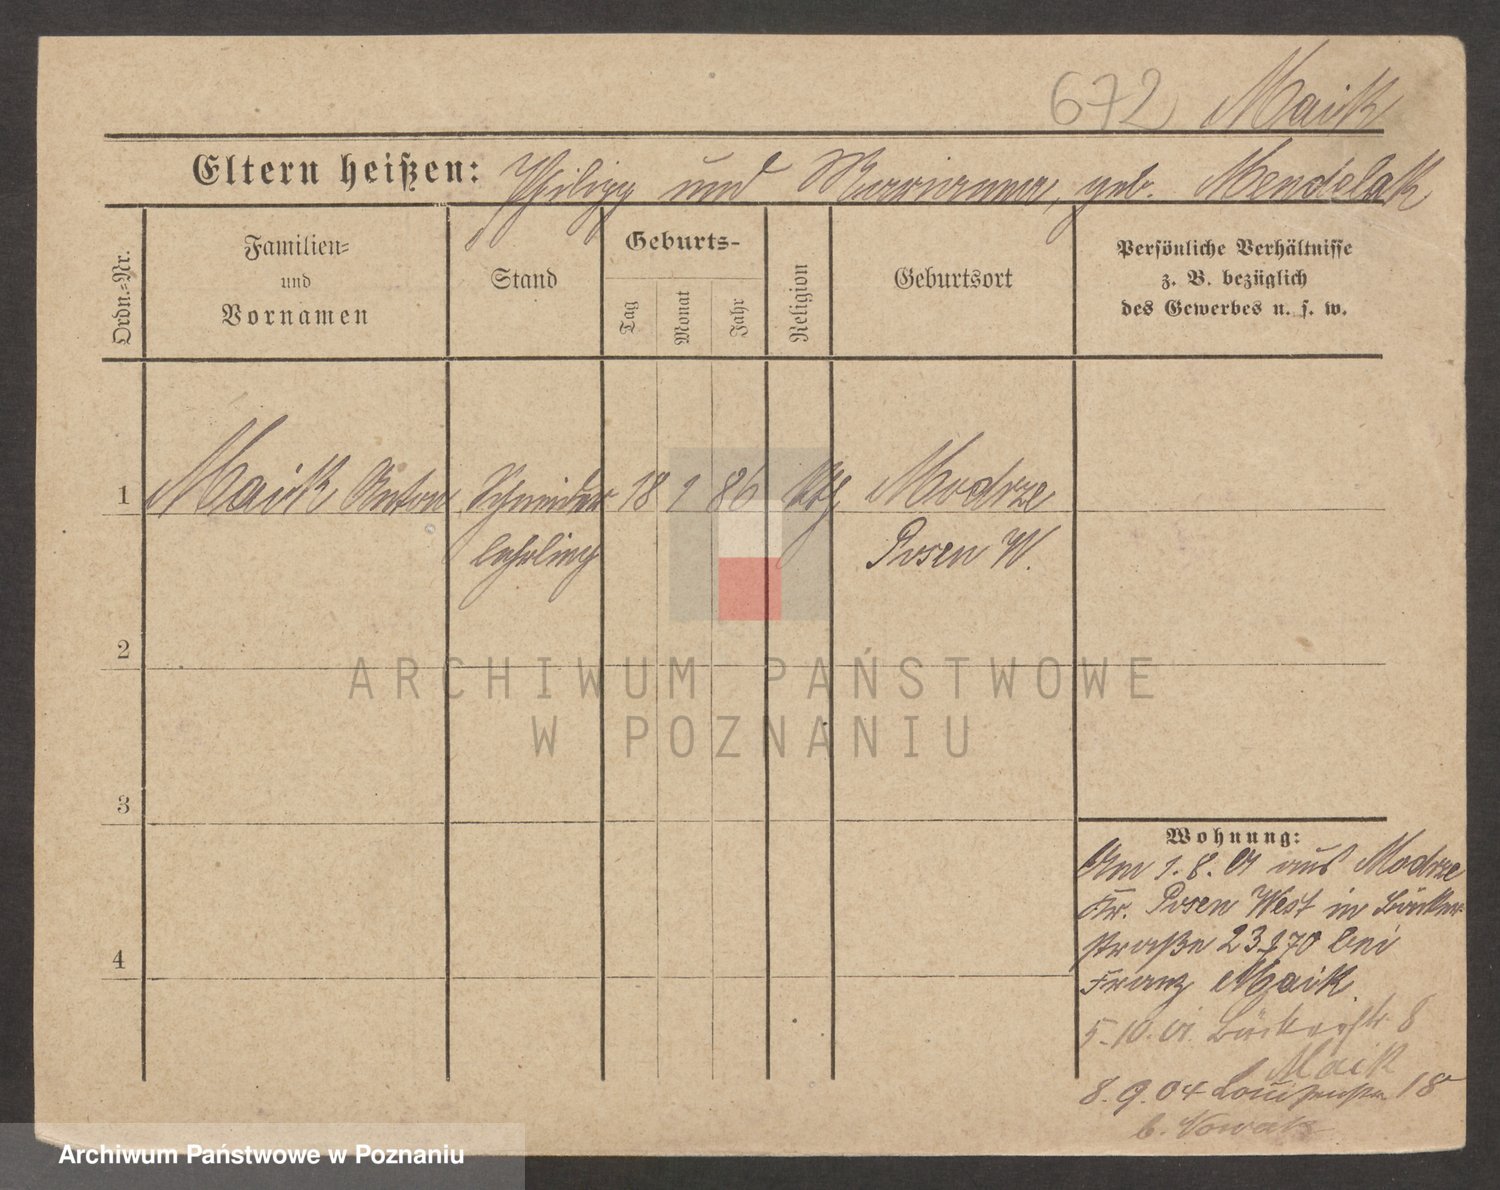 672 Maik
Eltern heißen: Philipp und Marianna, geb. Mendelak
Ordn.-Nr.
Familien-
und
Vornamen
Stand
Geburts-
Tag
Monat
Jahr
Religion
Geburtsort
Persönliche Verhältnisse
z. B. bezüglich
des Gewerbes u. s. w.
1 Maik Anton Schneider 18 1 86 Ktl Modrze
lehrling Posen W.
2
3
4
Wohnung:
Am 1.8.01 aus Modrze
Kr. Posen West in Bäcker-
straße 23 bei
Franz Maik
5.10.01 Bäckerstr 8
Maik
8.9.04 Louisenstr 18
b. Nowak
ARCHIWUM PAŃSTWOWE
W POZNANIU
Archiwum Państwowe w Poznaniu